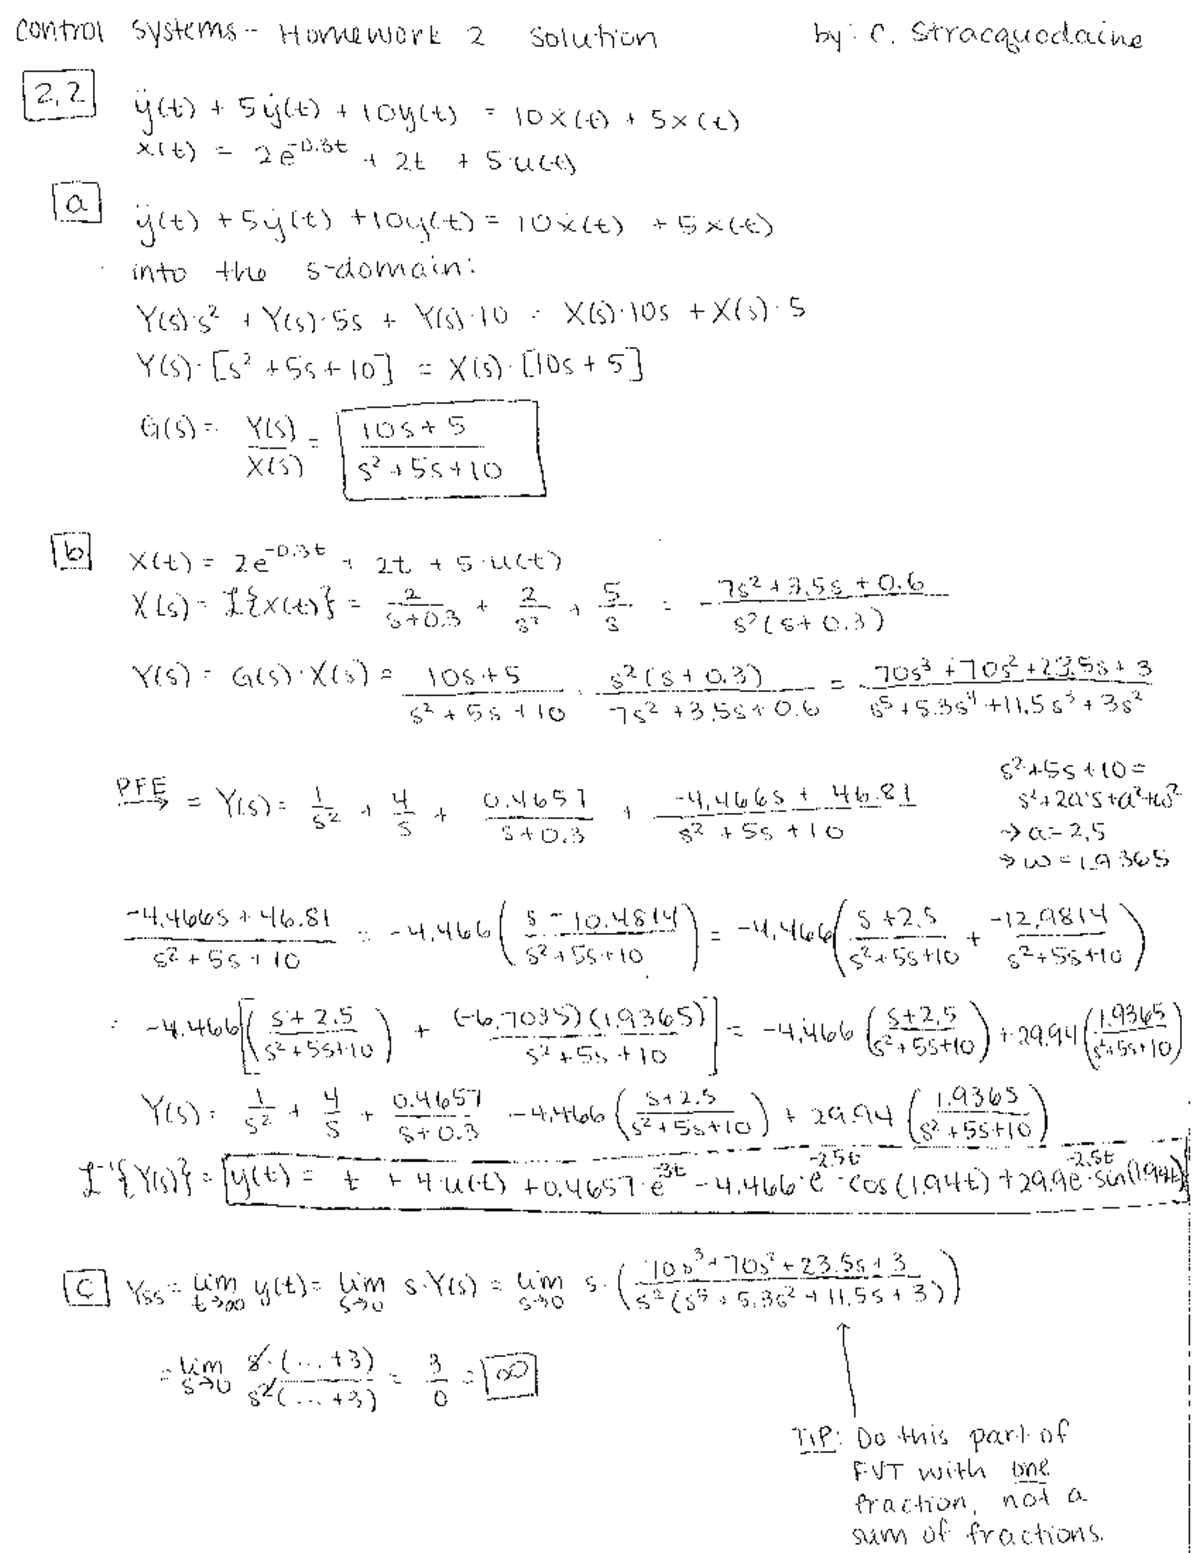 Control Systems - Homework 2 Solution by: C. Stracquodaine
2.2 ÿ(t) + 5ẏ(t) + 10y(t) = 10ẋ(t) + 5x(t)
x(t) = 2e^-0.3t + 2t + 5·u(t)
a ÿ(t) + 5ẏ(t) + 10y(t) = 10ẋ(t) + 5x(t)
into the s-domain:
Y(s)·s² + Y(s)·5s + Y(s)·10 = X(s)·10s + X(s)·5
Y(s)·[s² + 5s + 10] = X(s)·[10s + 5]
G(s) = Y(s)/X(s) = (10s + 5)/(s² + 5s + 10)
b X(t) = 2e^-0.3t + 2t + 5·u(t)
X(s) = ℒ{x(t)} = 2/(s+0.3) + 2/s² + 5/s = (7s² + 3.5s + 0.6)/(s²(s + 0.3))
Y(s) = G(s)·X(s) = (10s+5)/(s² + 5s + 10) · (s²(s + 0.3))/(7s² + 3.5s + 0.6) = (70s³ + 70s² + 23.5s + 3)/(s⁵ + 5.3s⁴ + 11.5s³ + 3s²)
PFE → = Y(s) = 1/s² + 4/s + 0.4657/(s+0.3) + (-4.466s + 46.81)/(s² + 5s + 10)
s² + 5s + 10 =
s² + 2a·s + a² + ω²
→ a = 2.5
→ ω = 1.9365
(-4.466s + 46.81)/(s² + 5s + 10) = -4.466((s - 10.4814)/(s² + 5s + 10)) = -4.466((s + 2.5)/(s² + 5s + 10) + (-12.9814)/(s² + 5s + 10))
= -4.466[((s + 2.5)/(s² + 5s + 10)) + ((-6.7035)(1.9365))/(s² + 5s + 10)] = -4.466((s + 2.5)/(s² + 5s + 10)) + 29.94(1.9365/(s² + 5s + 10))
Y(s) = 1/s² + 4/s + 0.4657/(s + 0.3) - 4.466((s + 2.5)/(s² + 5s + 10)) + 29.94(1.9365/(s² + 5s + 10))
ℒ⁻¹{Y(s)} = y(t) = t + 4·u(t) + 0.4657·e^-3t - 4.466·e^-2.5t·cos(1.94t) + 29.9e^-2.5t·sin(1.94t)
c Yss = lim t→∞ y(t) = lim s→0 s·Y(s) = lim s→0 s·((10s³ + 70s² + 23.5s + 3)/(s²(s³ + 5.3s² + 11.5s + 3)))
= lim s→0 (s·(... + 3))/(s²(... + 3)) = 3/0 = ∞
TIP: Do this part of
FVT with one
fraction, not a
sum of fractions.